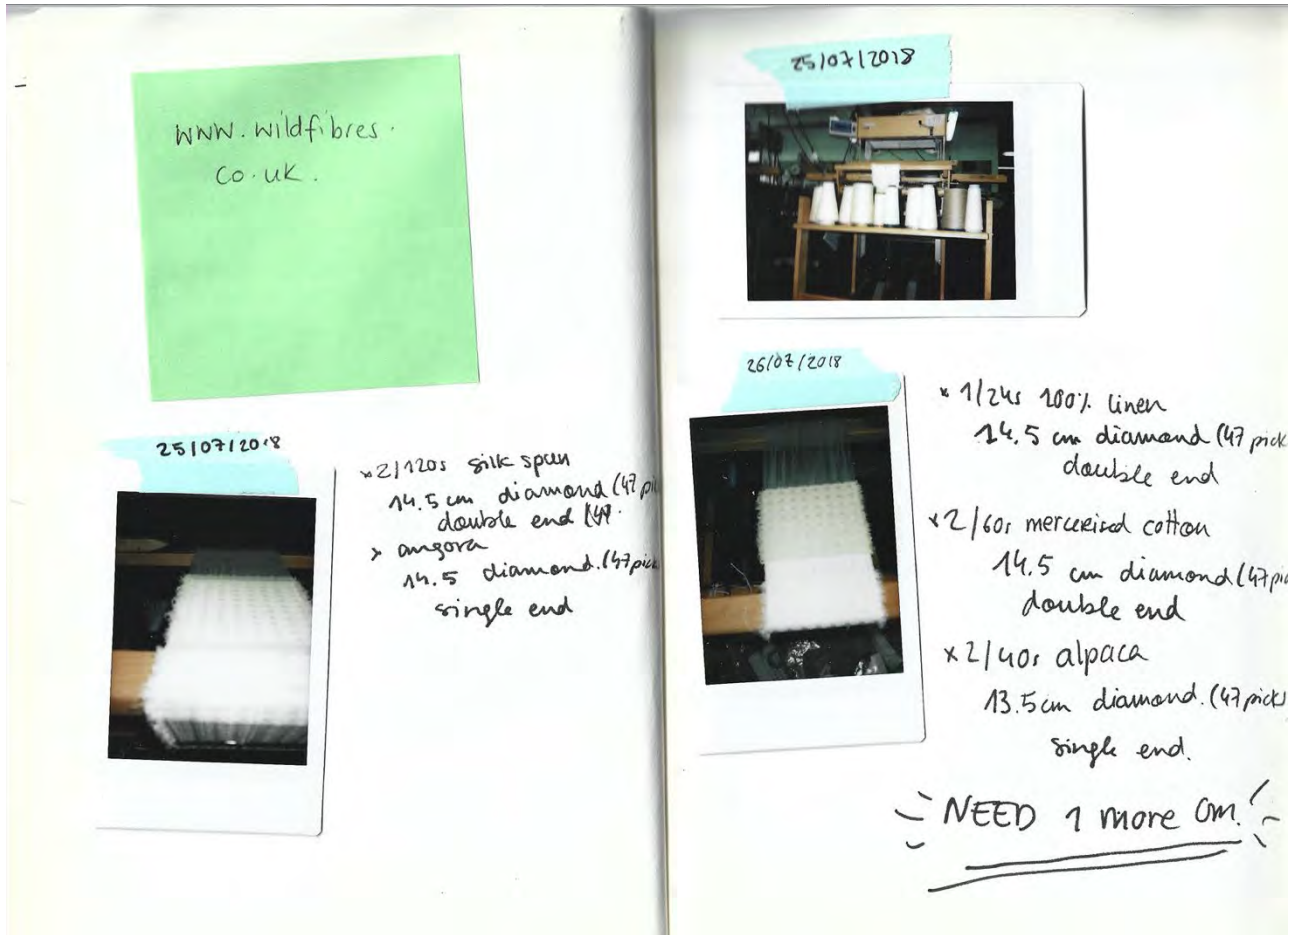 www.wildfibres.
co.uk.
25/07/2018
x 2/120s silk spun
14.5 cm diamond (47 pi
double end (47.
x angora
14.5 diamond. (47 pick
single end
25/07/2018
26/07/2018
x 1/24s 100% linen
14.5 cm diamond (47 pick
double end
x 2/60s mercerised cotton
14.5 cm diamond (47 pic
double end
x 2/40s alpaca
13.5 cm diamond. (47 picks
single end.
NEED 1 more cm.